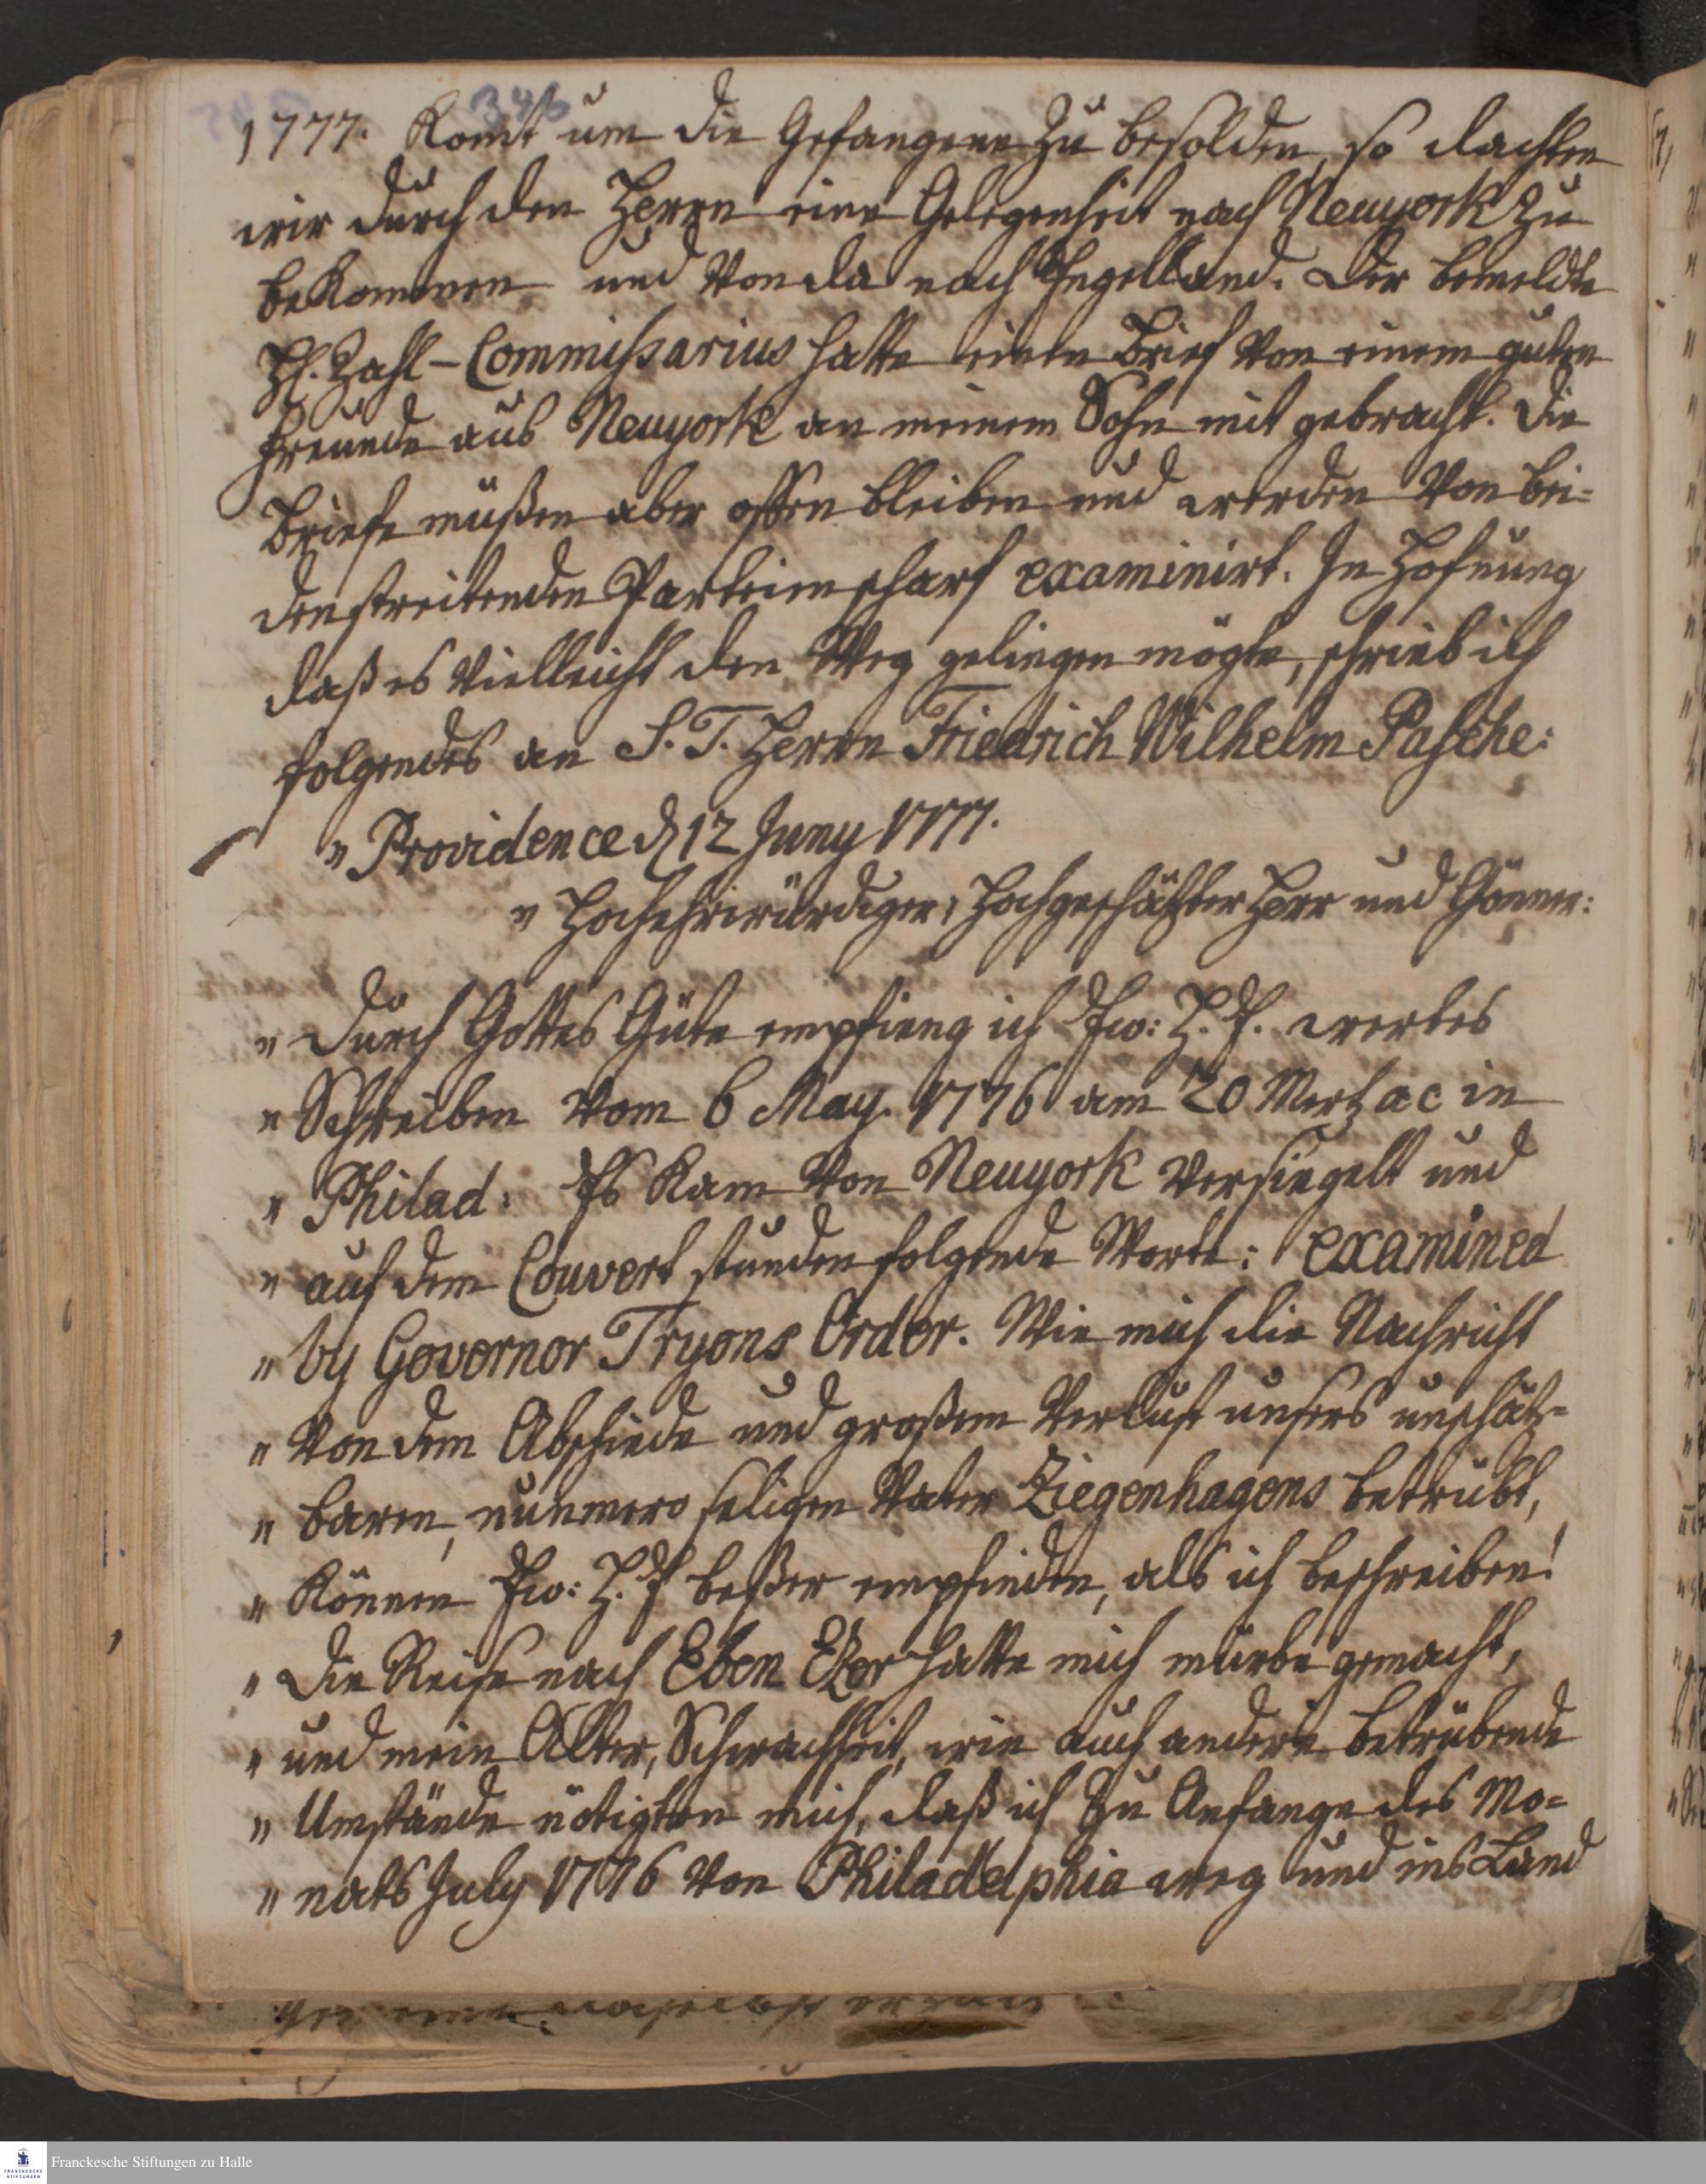 346
1777. Komt um die Gefangene zu besolden, so dachten
wir durch den Herrn eine Gelegenheit nach Neuyork zu
bekommen und von da nach Engelland. Der bemeldte
H. Zahl-Commissarius hatte einen Brief von einem guten
Freunde aus Neuyork an meinem Sohn mit gebracht. Die
Briefe müßen aber offen bleiben und werden von bei=
den streitenden Parteien scharf examinirt. In Hofnung
daß es vielleicht den Weg gelingen mögte, schrieb ich
folgendes an S. T. Herrn Friedrich Wilhelm Pasche:
" Providence d 12 Juny 1777.
" Hochehrwürdiger, Hochgeschäzter Herr und Gönner:
" Durch Gottes Güte empfieng ich Ew: H. E. wertes
" Schreiben vom 6 May. 1776 am 20 Mertz a c in
" Philad: Es kam von Neuyork versiegelt und
" auf dem Couvert stunden folgende Worte: examined
" by Governor Tryons Order. Wie mich die Nachricht
" von dem Abschiede und großem Verlust unsers unschätz=
" baren, nunmero seligen Vater Ziegenhagens betrübt,
" können Ew: H. E beßer empfinden, als ich beschreiben!
" Die Reise nach Eben Ezer hatte mich mürbe gemacht,
" und mein Alter, Schwachheit, wie auch andere betrübende
" Umstände nötigten mich, daß ich zu Anfange des Mo=
" nats July 1776 von Philadelphia weg und ins Land
Franckesche Stiftungen zu Halle